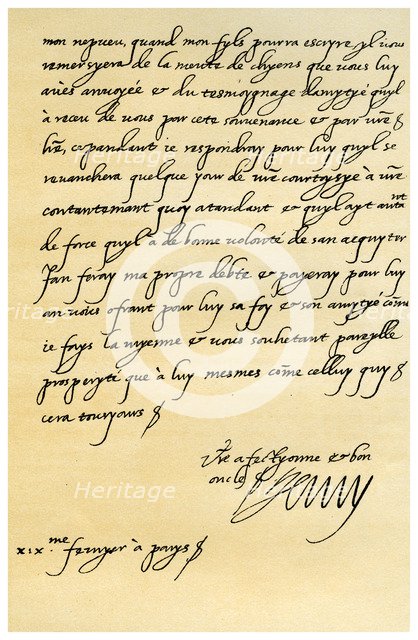 mon nepueu, quand mon fyls pourra escryre, yl vous
remersyera de la meute de chyens que vous luy
aues anuoyée & du tesmoygnage damytyé quyl
à receu de vous par cete souuenance & par vre
lre, cepandant ie respondray pour luy quyl se
reuanchera quelque jour de vre courtoysye à vre
contantemant quoy atandant & quyl ayt autant
de force quyl à de bonne volonté de san acquyter
Jan feray ma propre debte & payeray pour luy
an vous ofrant pour luy sa foy & son amytyé come
ie fays la myenne & vous souhetant pareylle
prosperyté que à luy mesmes come celluy quy
cera tousyours
Vre afectyonne & bon
oncle Henry
xix me feuryer à parys
Heritage Heritage
Heritage Heritage
Heritage Heritage